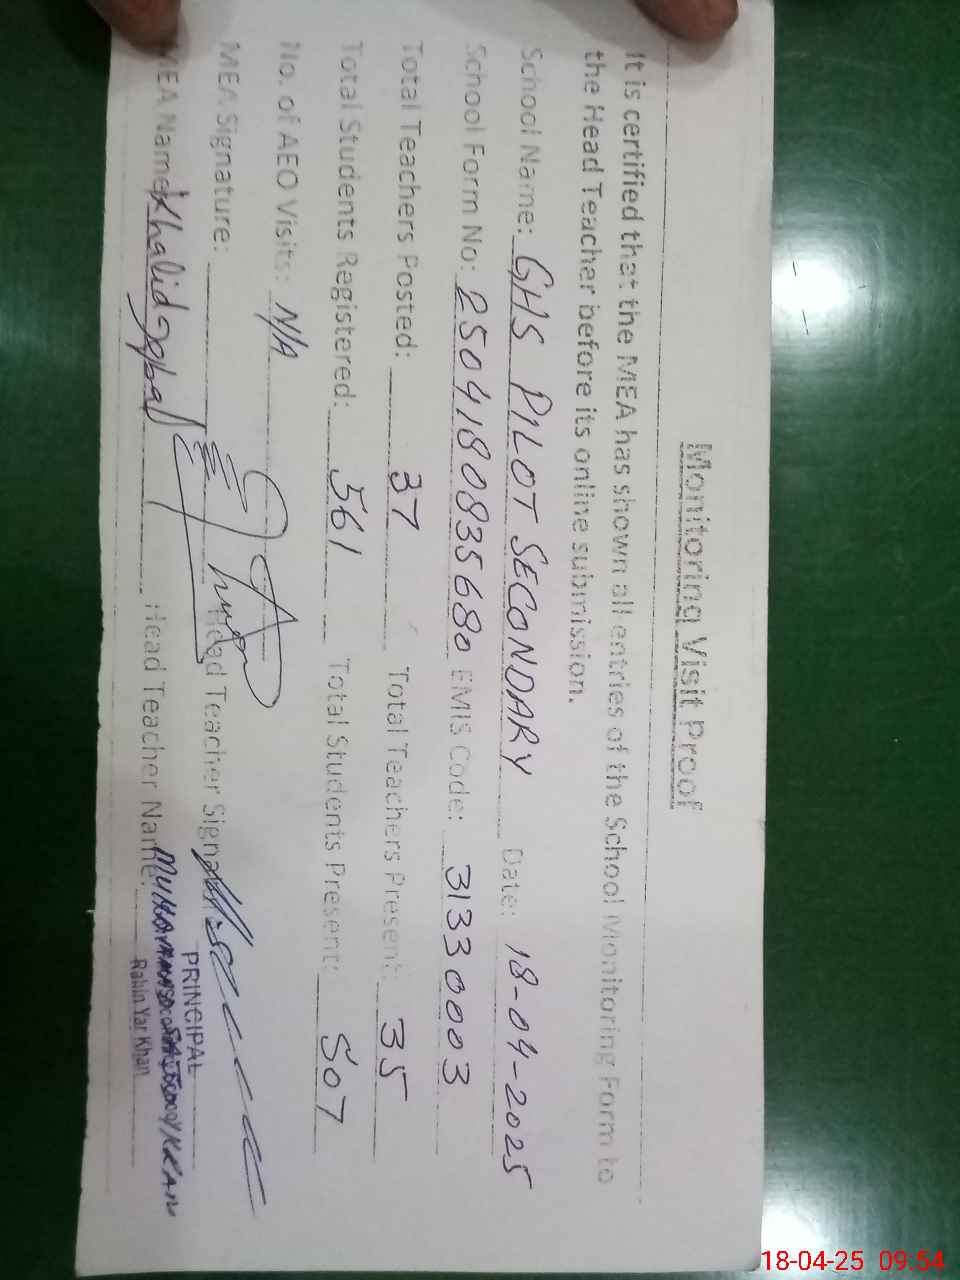 Monitoring Visit Proof
It is certified that the MEA has shown all entries of the School Monitoring Form to
the Head Teacher before its online submission.
School Name: GHS PILOT SECONDARY Date: 18-04-2025
School Form No: 2504180835680 EMIS Code: 31330003
Total Teachers Posted: 37 Total Teachers Present: 35
Total Students Registered: 561 Total Students Present: 507
No. of AEO Visits: N/A
MEA Signature: Head Teacher
PRINCIPAL
MEA Name: Khalid Iqbal Head Teacher Name:
Rahim Yar Khan
18-04-25 09:54